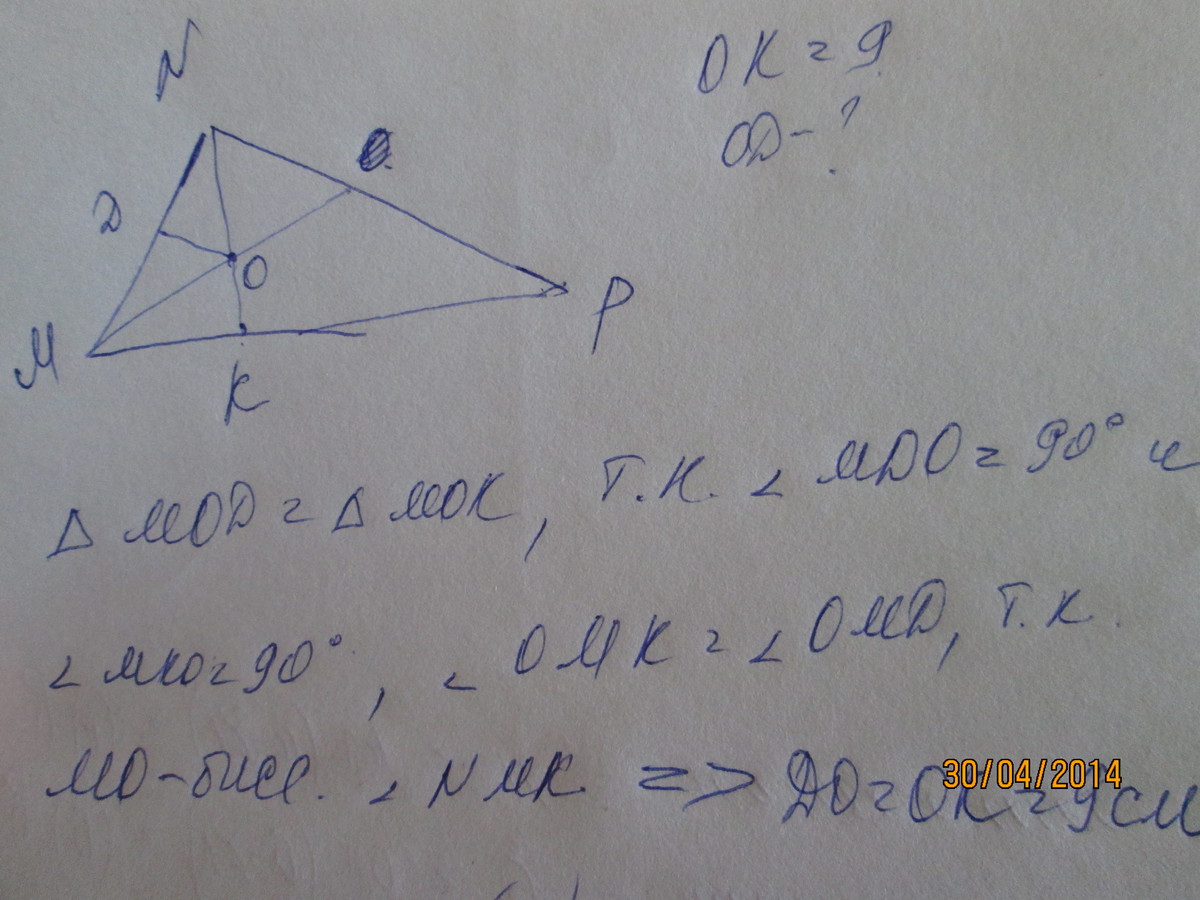 N
OK = 9
OD - ?
D
O
M
P
K
Δ MOD = Δ MOK, т.к. ∠ MDO = 90° и
∠ MKO = 90°, ∠ OMK = ∠ OMD, т.к.
MO - бисс. ∠ NMK. => DO = OK = 9 см
30/04/2014